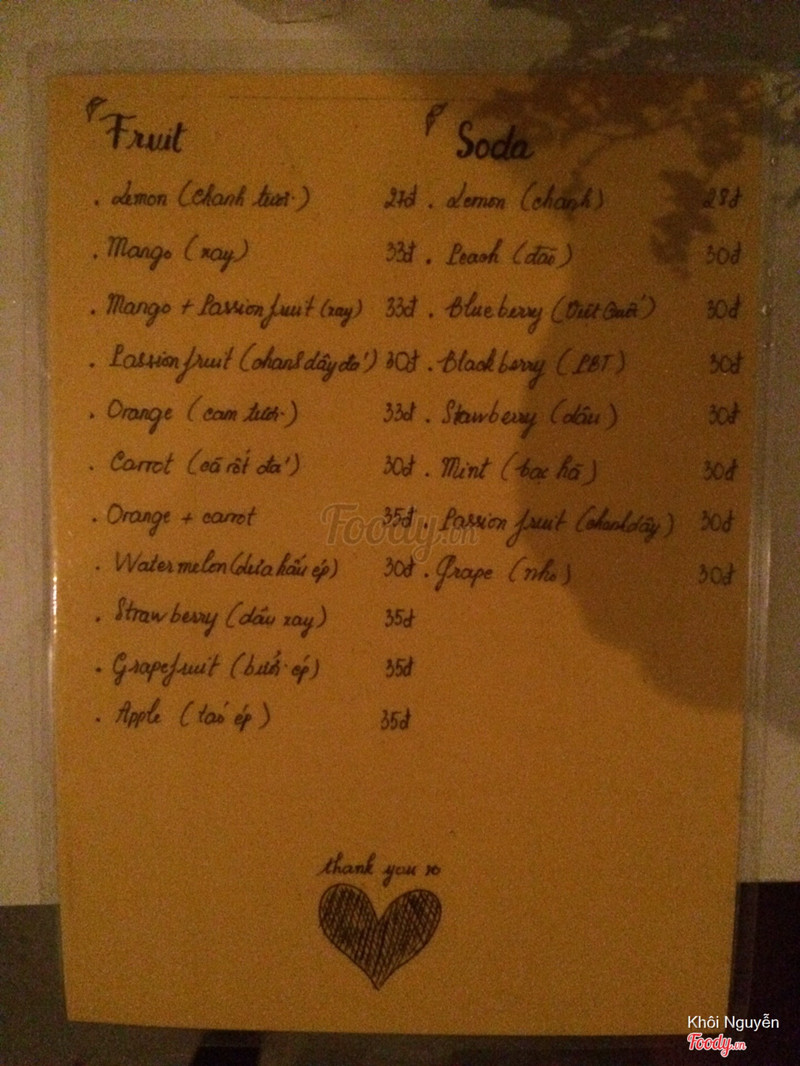 Fruit
. Lemon (chanh tươi) 27đ
. Mango (xay) 33đ
. Mango + Passion fruit (xay) 33đ
. Passion fruit (chanh dây đá) 30đ
. Orange (cam tươi) 33đ
. Carrot (cà rốt đá) 30đ
. Orange + carrot 35đ
. Watermelon (dưa hấu ép) 30đ
. Strawberry (dâu xay) 35đ
. Grapefruit (bưởi ép) 35đ
. Apple (táo ép) 35đ
Soda
. Lemon (chanh) 28đ
. Peach (đào) 30đ
. Blueberry (Việt Quất) 30đ
. Blackberry (PBT) 30đ
. Stawberry (dâu) 30đ
. Mint (bạc hà) 30đ
. Passion fruit (chanh dây) 30đ
. Grape (nho) 30đ
thank you
Foody.vn
Khôi Nguyễn
Foody.vn